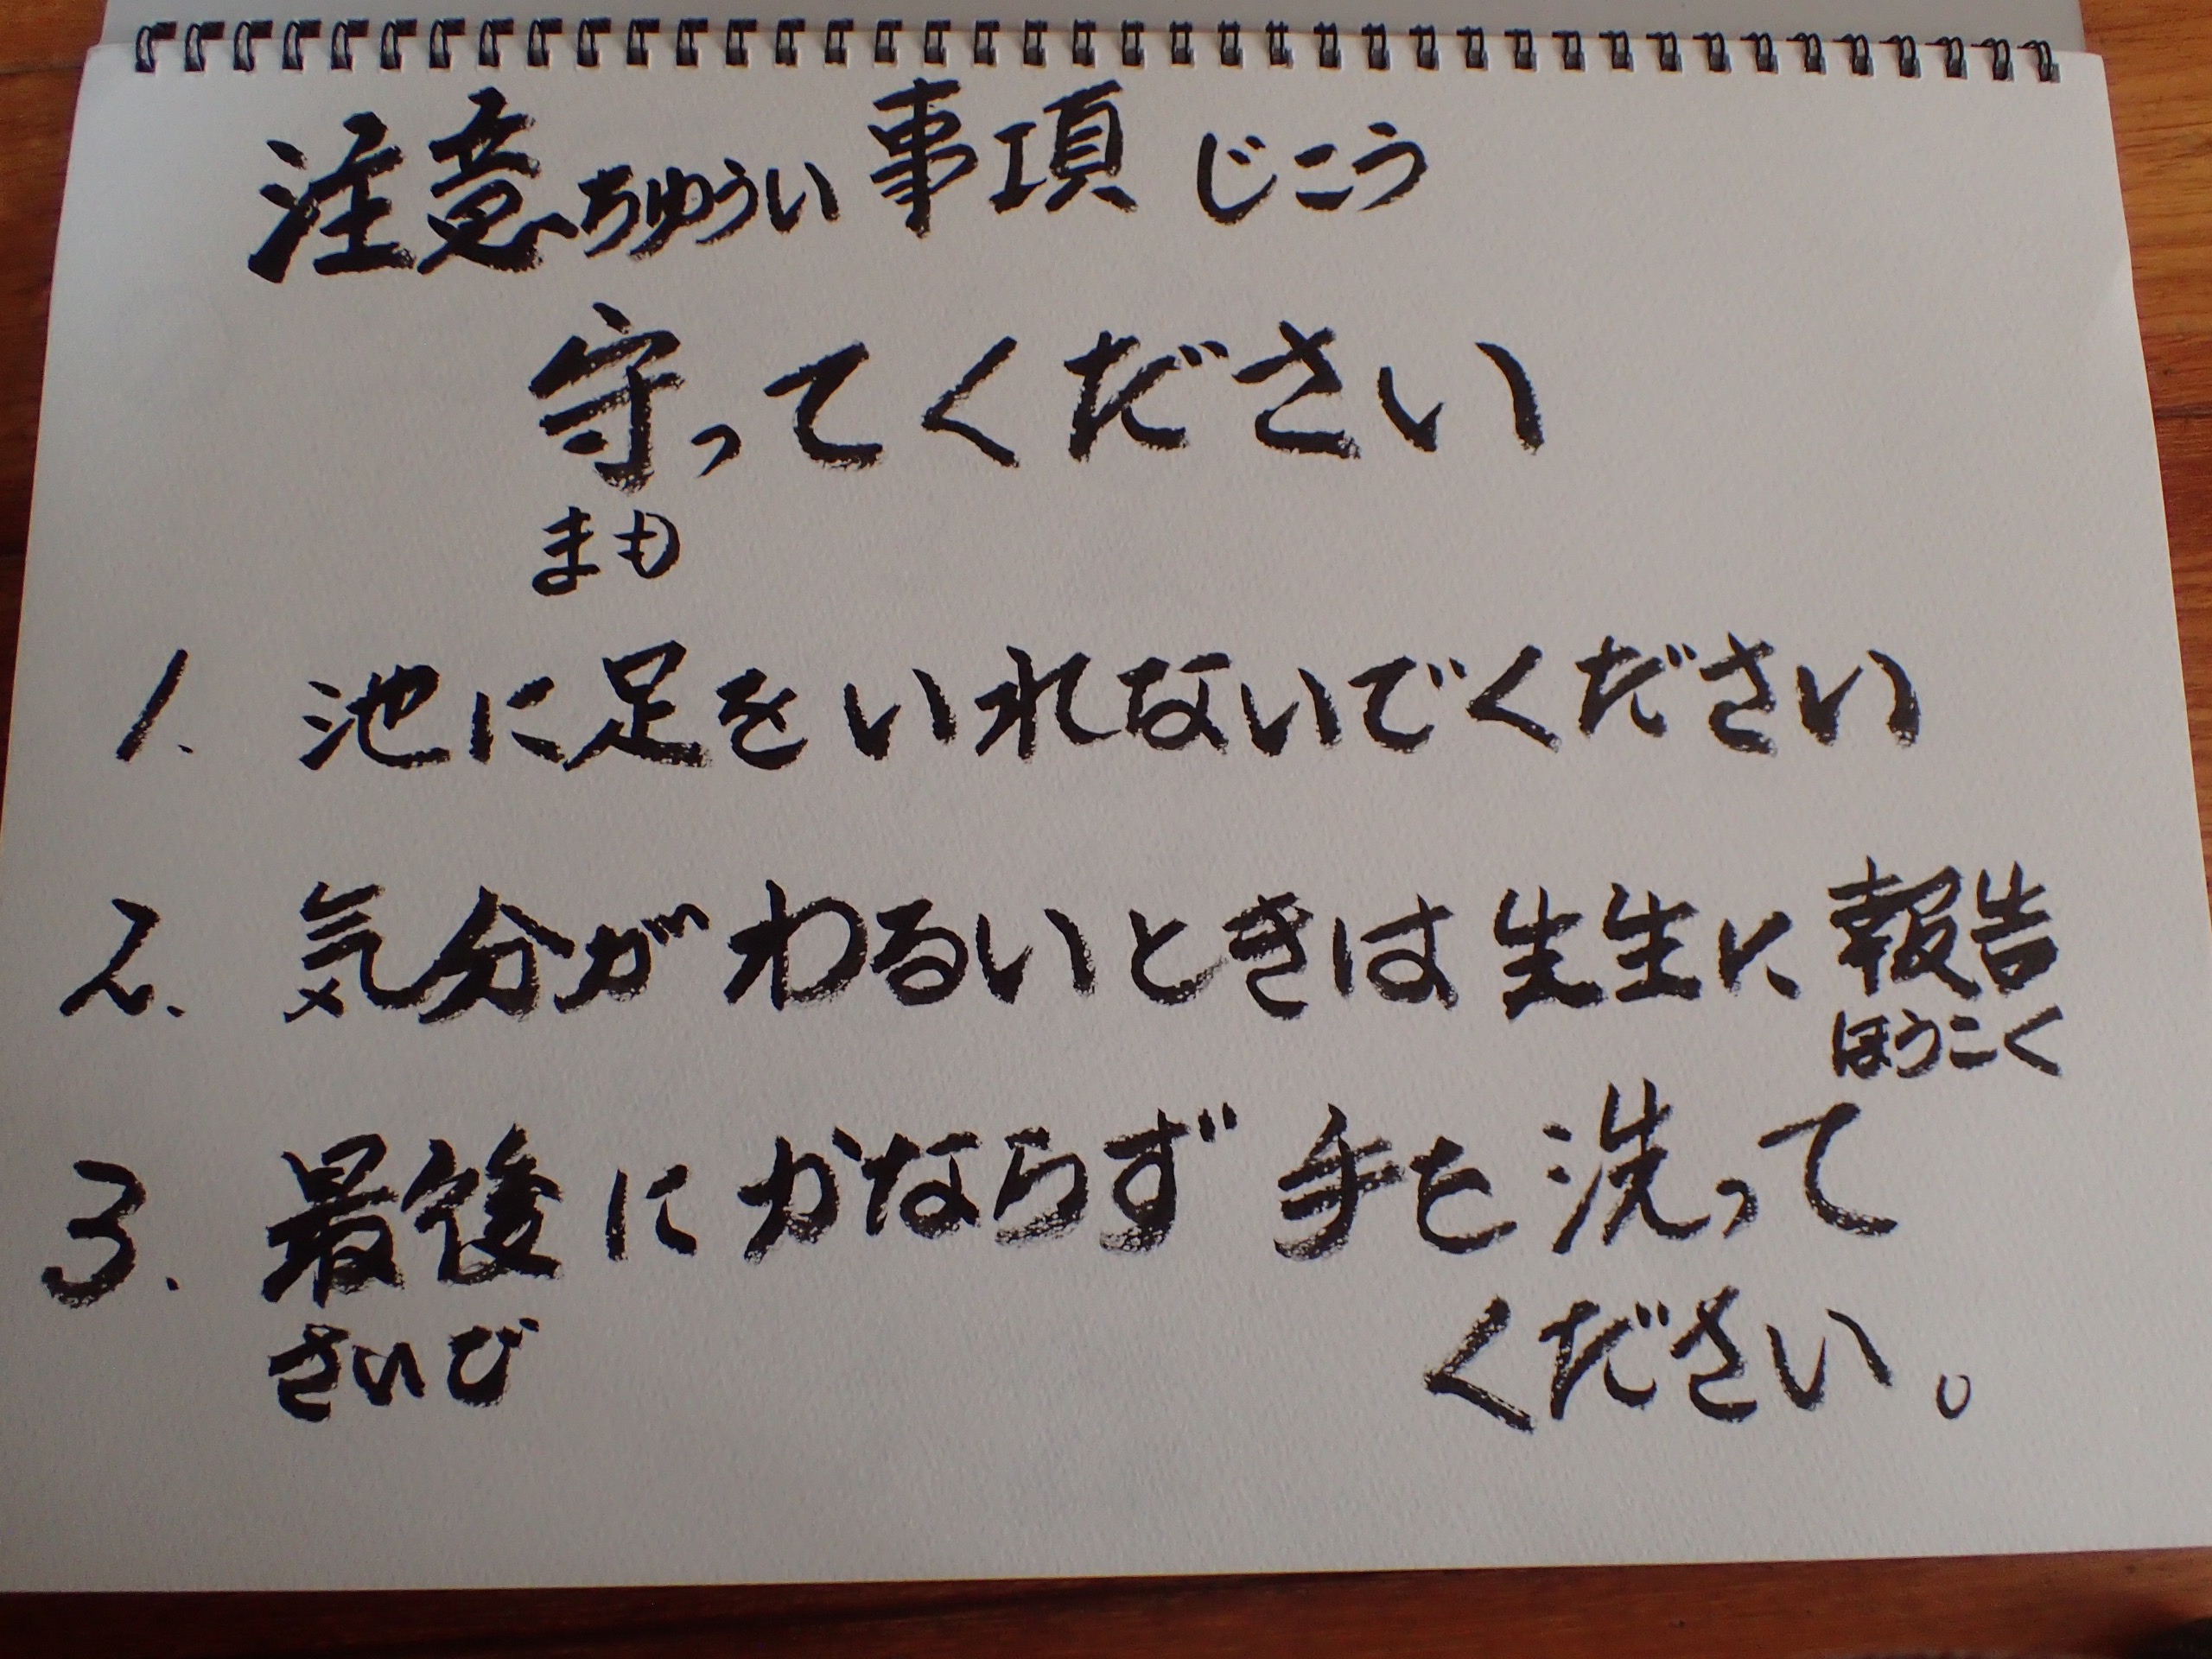 注意ちゅうい事項じこう
守ってください
まも
1. 池に足をいれないでください
2. 気分がわるいときは生生に報告
ほうこく
3. 最後にかならず手を洗って
さいご
ください。